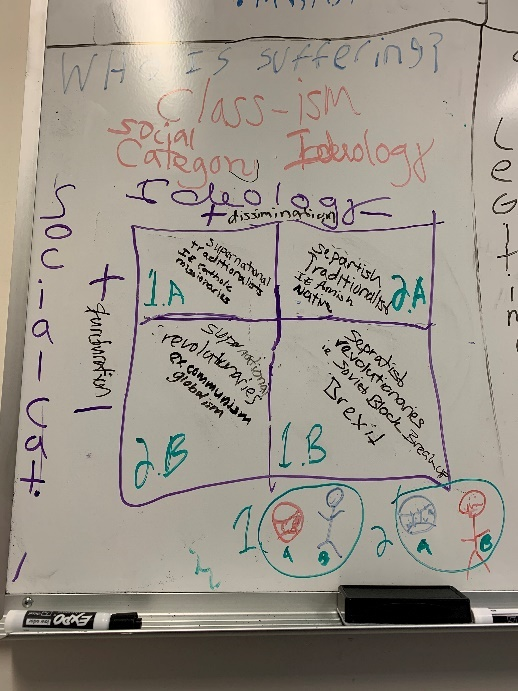 Who Is suffering?
Class-ism
social
Category Ideology
Ideology
+ dissimination -
Social Cat.
+
-
1.A
Supranational
traditionalists
IE Catholic
missionaries
Separtish
Traditionalist
IE Amish
Native
2.A
Supranational
revolutionaries
ex communism
globalism
2.B
Sepratist
revolutionaries
ie Soviet Block Breakup
Brexit
1.B
1.
A
B
2
A
B
EXPO